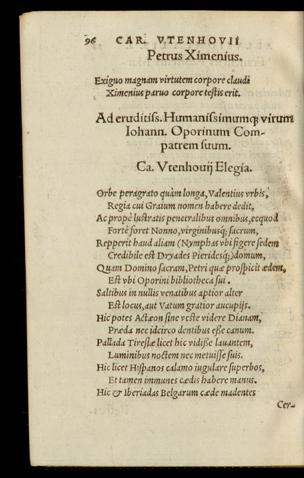 96 CAR. VTENHOVII
Petrus Ximenius.
Exiguo magnam virtutem corpore claudi
Ximenius paruo corpore testis erit.
Ad eruditiss. Humanissimumq; virum
Iohann. Oporinum Com-
patrem suum.
Ca. Vtenhouij Elegia.
Orbe peragrato quàm longa, Valentius vrbis,
Regia cui Graium nomen habere dedit,
Ac propè lustratis penetralibus omnibus, ecquod
Fortè foret Nonno, virginibusq; sacrum,
Repperit haud aliam (Nymphas vbi figere sedem
Credibile est Dryades Pieridesq;) domum,
Quam Domino sacram, Petri quæ prospicit ædem,
Est vbi Oporini bibliotheca sui.
Saltibus in nullis venatibus aptior alter
Est locus, aut Vatum gratior aucupijs.
Hic potes Actæon sine veste videre Dianam,
Præda nec idcirco dentibus esse canum.
Pallada Tiresiæ licet hic vidisse lauantem,
Luminibus noctem nec metuisse suis.
Hic licet Hispanos calamo iugulare superbos,
Et tamen immunes cædis habere manus.
Hic & Iberiadas Belgarum cæde madentes
Cer-